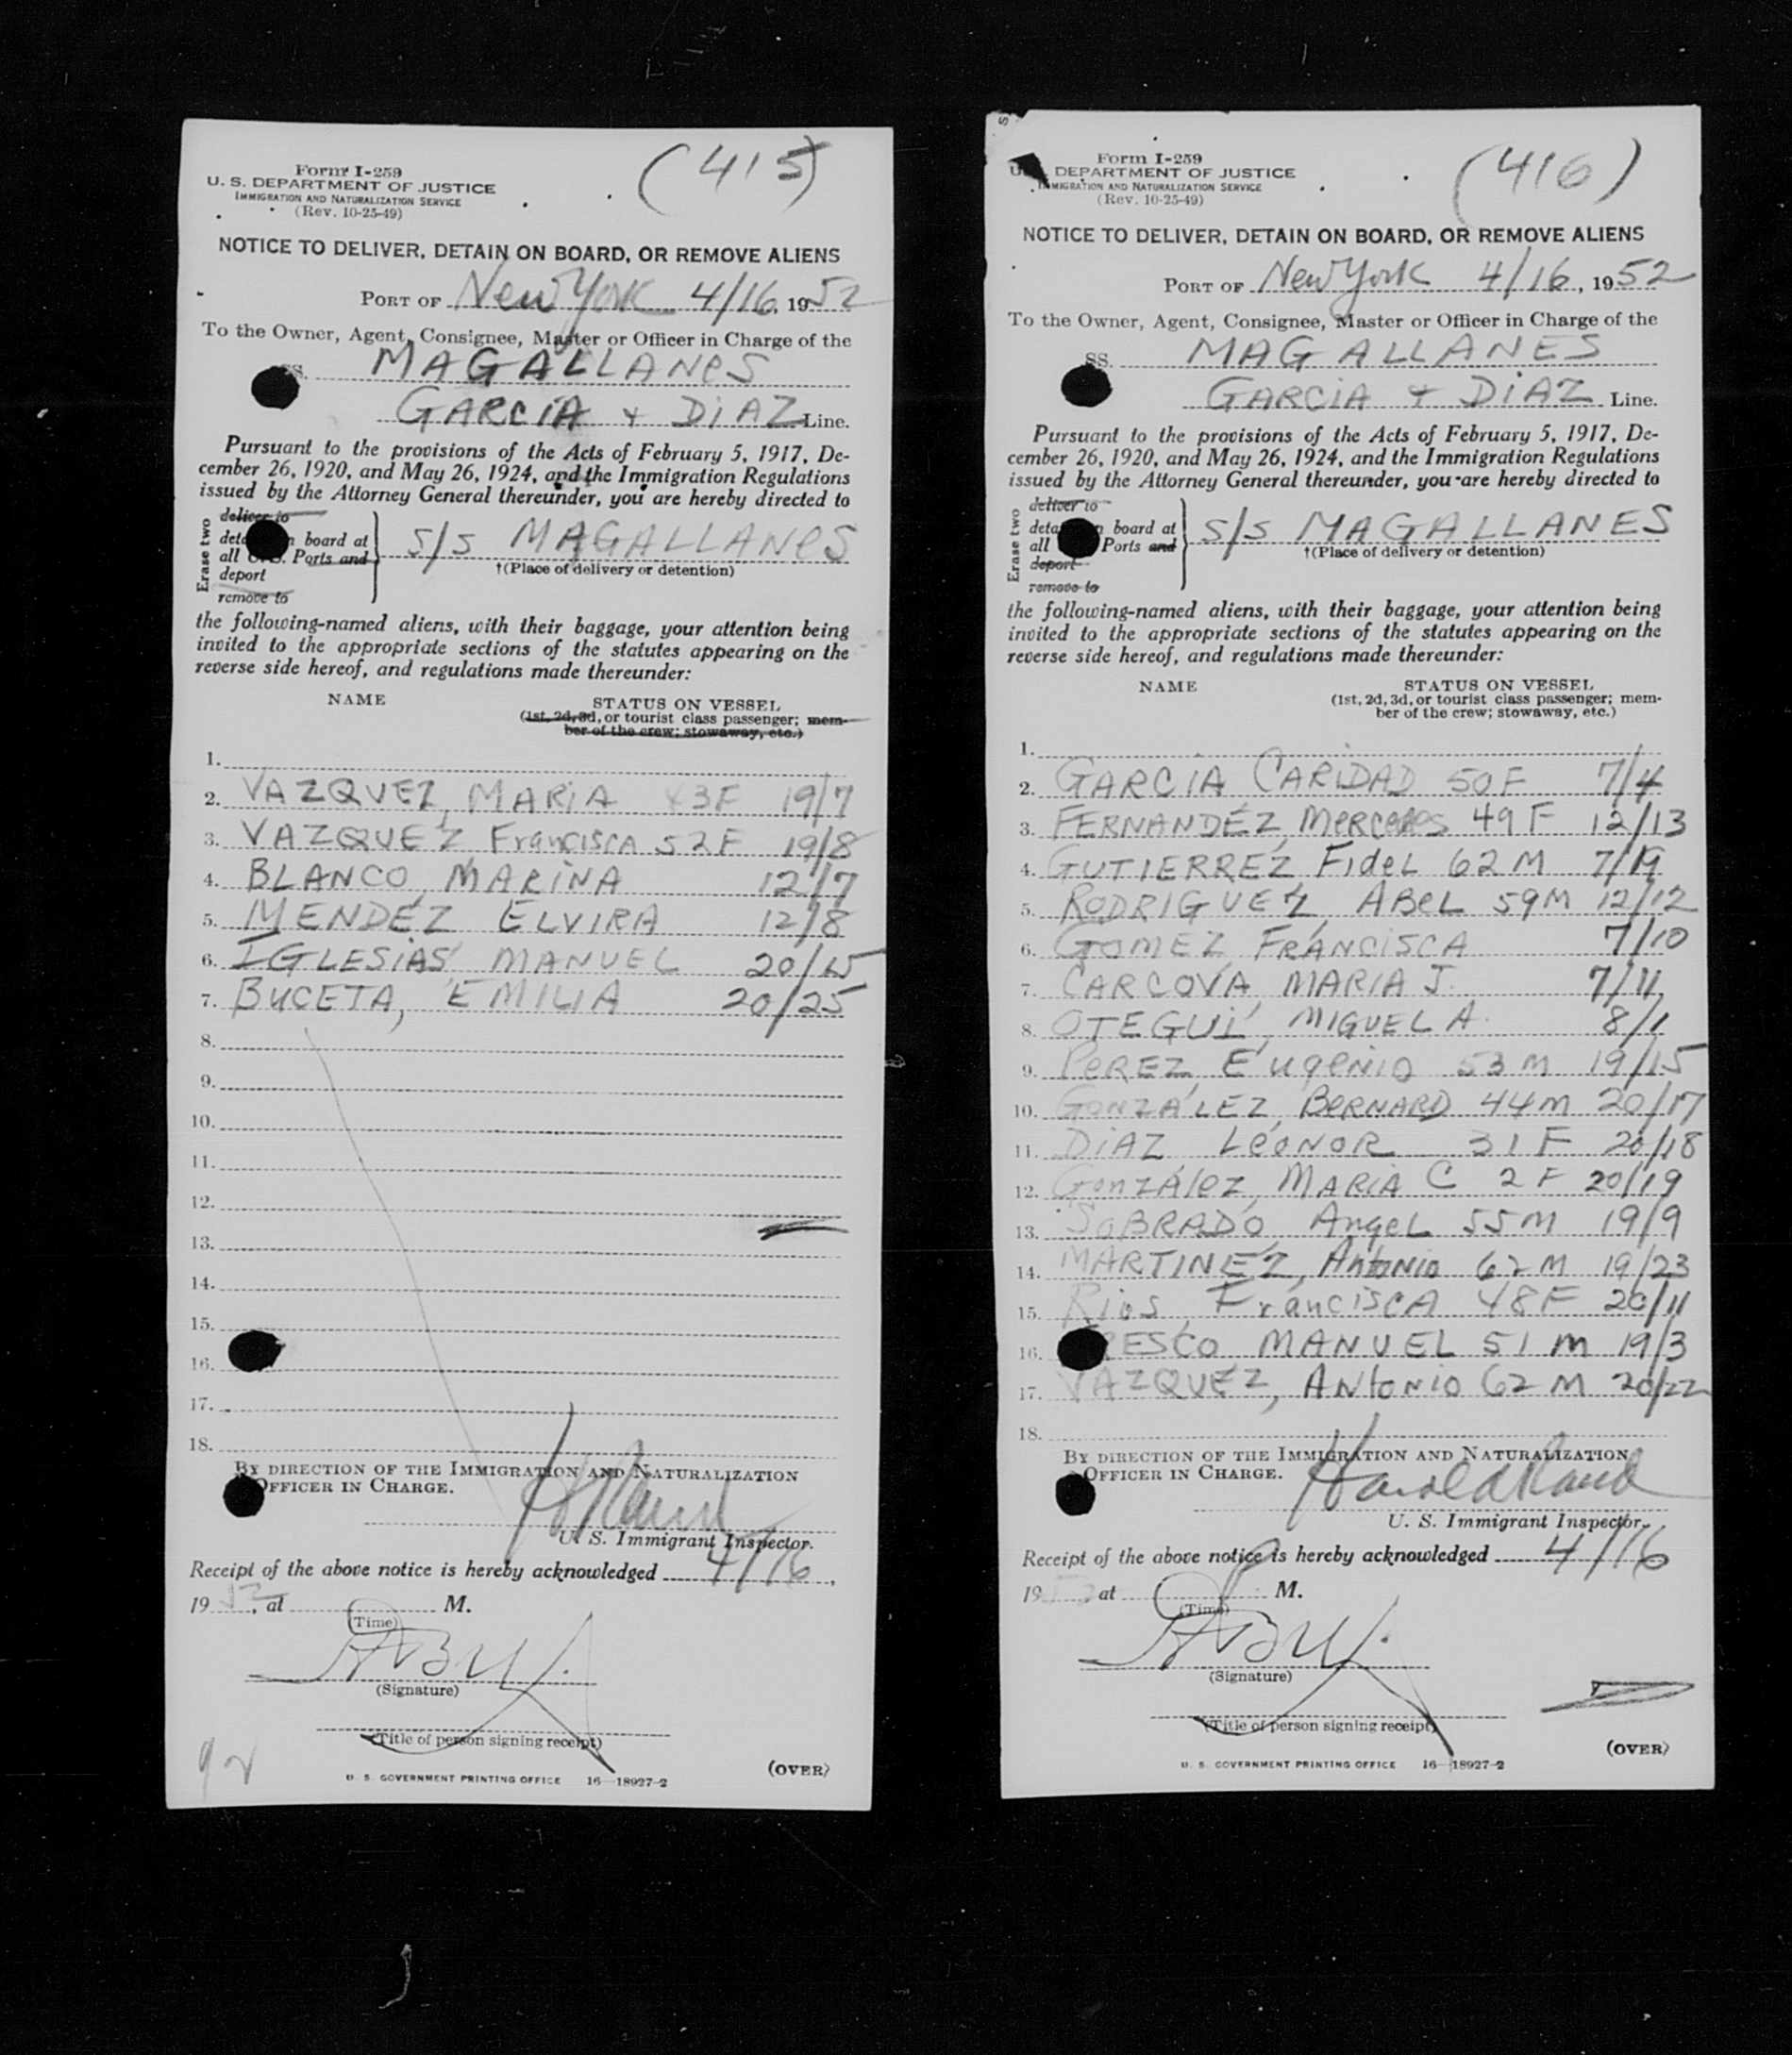 (415)
Form I-259
U. S. DEPARTMENT OF JUSTICE
IMMIGRATION AND NATURALIZATION SERVICE
(Rev. 10-25-49)
NOTICE TO DELIVER, DETAIN ON BOARD, OR REMOVE ALIENS
PORT OF New York 4/16, 1952
To the Owner, Agent, Consignee, Master or Officer in Charge of the
MAGALLANES
GARCIA + DIAZ Line.
Pursuant to the provisions of the Acts of February 5, 1917, De-
cember 26, 1920, and May 26, 1924, and the Immigration Regulations
issued by the Attorney General thereunder, you are hereby directed to
Erase two
deliver to
board at
all Ports and
deport
remove to
S/S MAGALLANES
†(Place of delivery or detention)
the following-named aliens, with their baggage, your attention being
invited to the appropriate sections of the statutes appearing on the
reverse side hereof, and regulations made thereunder:
NAME STATUS ON VESSEL
(1st, 2d, 3d, or tourist class passenger; mem-
ber of the crew; stowaway, etc.)
1.
2. VAZQUEZ, MARIA 19/7
3. VAZQUEZ Francisca 52F 19/8
4. BLANCO, MARINA 12/7
5. MENDEZ ELVIRA 12/8
6. IGLESIAS MANUEL
7. BUCETA, EMILIA 20/25
8.
9.
10.
11.
12.
13.
14.
15.
16.
17.
18.
BY DIRECTION OF THE IMMIGRATION AND NATURALIZATION
OFFICER IN CHARGE.
U. S. Immigrant Inspector.
Receipt of the above notice is hereby acknowledged 4/16,
1952, at M.
(Time)
(Signature)
(Title of person signing receipt)
(OVER)
U. S. GOVERNMENT PRINTING OFFICE 16—18927-2
(416)
Form I-259
DEPARTMENT OF JUSTICE
IMMIGRATION AND NATURALIZATION SERVICE
(Rev. 10-25-49)
NOTICE TO DELIVER, DETAIN ON BOARD, OR REMOVE ALIENS
PORT OF New York 4/16, 1952
To the Owner, Agent, Consignee, Master or Officer in Charge of the
SS. MAGALLANES
GARCIA + DIAZ Line.
Pursuant to the provisions of the Acts of February 5, 1917, De-
cember 26, 1920, and May 26, 1924, and the Immigration Regulations
issued by the Attorney General thereunder, you are hereby directed to
Erase two
deliver to
board at
all Ports and
deport
remove to
S/S MAGALLANES
†(Place of delivery or detention)
the following-named aliens, with their baggage, your attention being
invited to the appropriate sections of the statutes appearing on the
reverse side hereof, and regulations made thereunder:
NAME STATUS ON VESSEL
(1st, 2d, 3d, or tourist class passenger; mem-
ber of the crew; stowaway, etc.)
1.
2. GARCIA CARIDAD 50F 7/4
3. FERNANDEZ, Mercedes 49 F 12/13
4. GUTIERREZ Fidel 62 M 7/19
5. RODRIGUEZ, ABEL 59M 12/12
6. GOMEZ FRANCISCA 7/10
7. CARCOVA, MARIA J. 7/11
8. OTEGUI, MIGUEL A. 8/1
9. PEREZ, EUGENIO 53 M 19/15
10. GONZALEZ, BERNARD 44M 20/17
11. DIAZ LEONOR 31 F 20/18
12. GonzAlez, MARIA C 2 F 20/19
13. SOBRADO, Angel 55M 19/9
14. MARTINEZ, Antonio 62 M 19/23
15. Rios, Francisca 48F 20/11
16. MANUEL 51 M 19/3
17. VAZQUEZ, ANtonio 62 M 20/22
18.
BY DIRECTION OF THE IMMIGRATION AND NATURALIZATION
OFFICER IN CHARGE.
U. S. Immigrant Inspector.
Receipt of the above notice is hereby acknowledged 4/16
19 at M.
(Time)
(Signature)
(Title of person signing receipt)
(OVER)
U. S. GOVERNMENT PRINTING OFFICE 16—18927-2